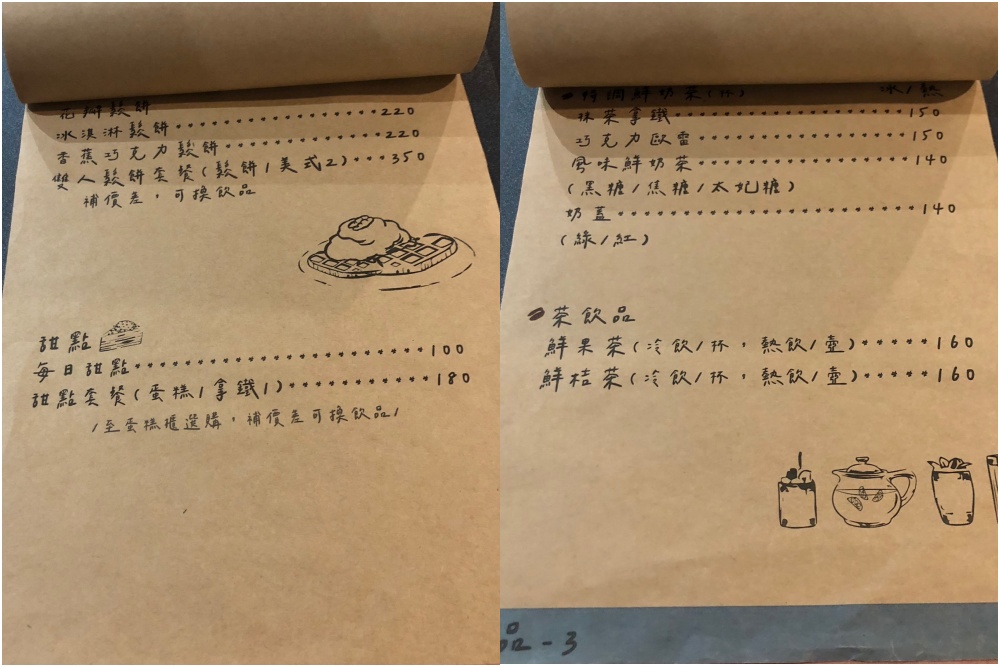 花瓣鬆餅
冰淇淋鬆餅··················220
香蕉巧克力鬆餅··············220
雙人鬆餅套餐(鬆餅1美式2)···350
補價差，可換飲品
甜點
每日甜點························100
甜點套餐(蛋糕1拿鐵1)···········180
/至蛋糕櫃選購，補價差可換飲品/
特調鮮奶茶(杯) 冰/熱
抹茶拿鐵························150
巧克力歐蕾······················150
風味鮮奶茶······················140
(黑糖/焦糖/太妃糖)
奶蓋····························140
(綠/紅)
茶飲品
鮮果茶(冷飲/杯，熱飲/壺)·····160
鮮桔茶(冷飲/杯，熱飲/壺)·····160
品-3